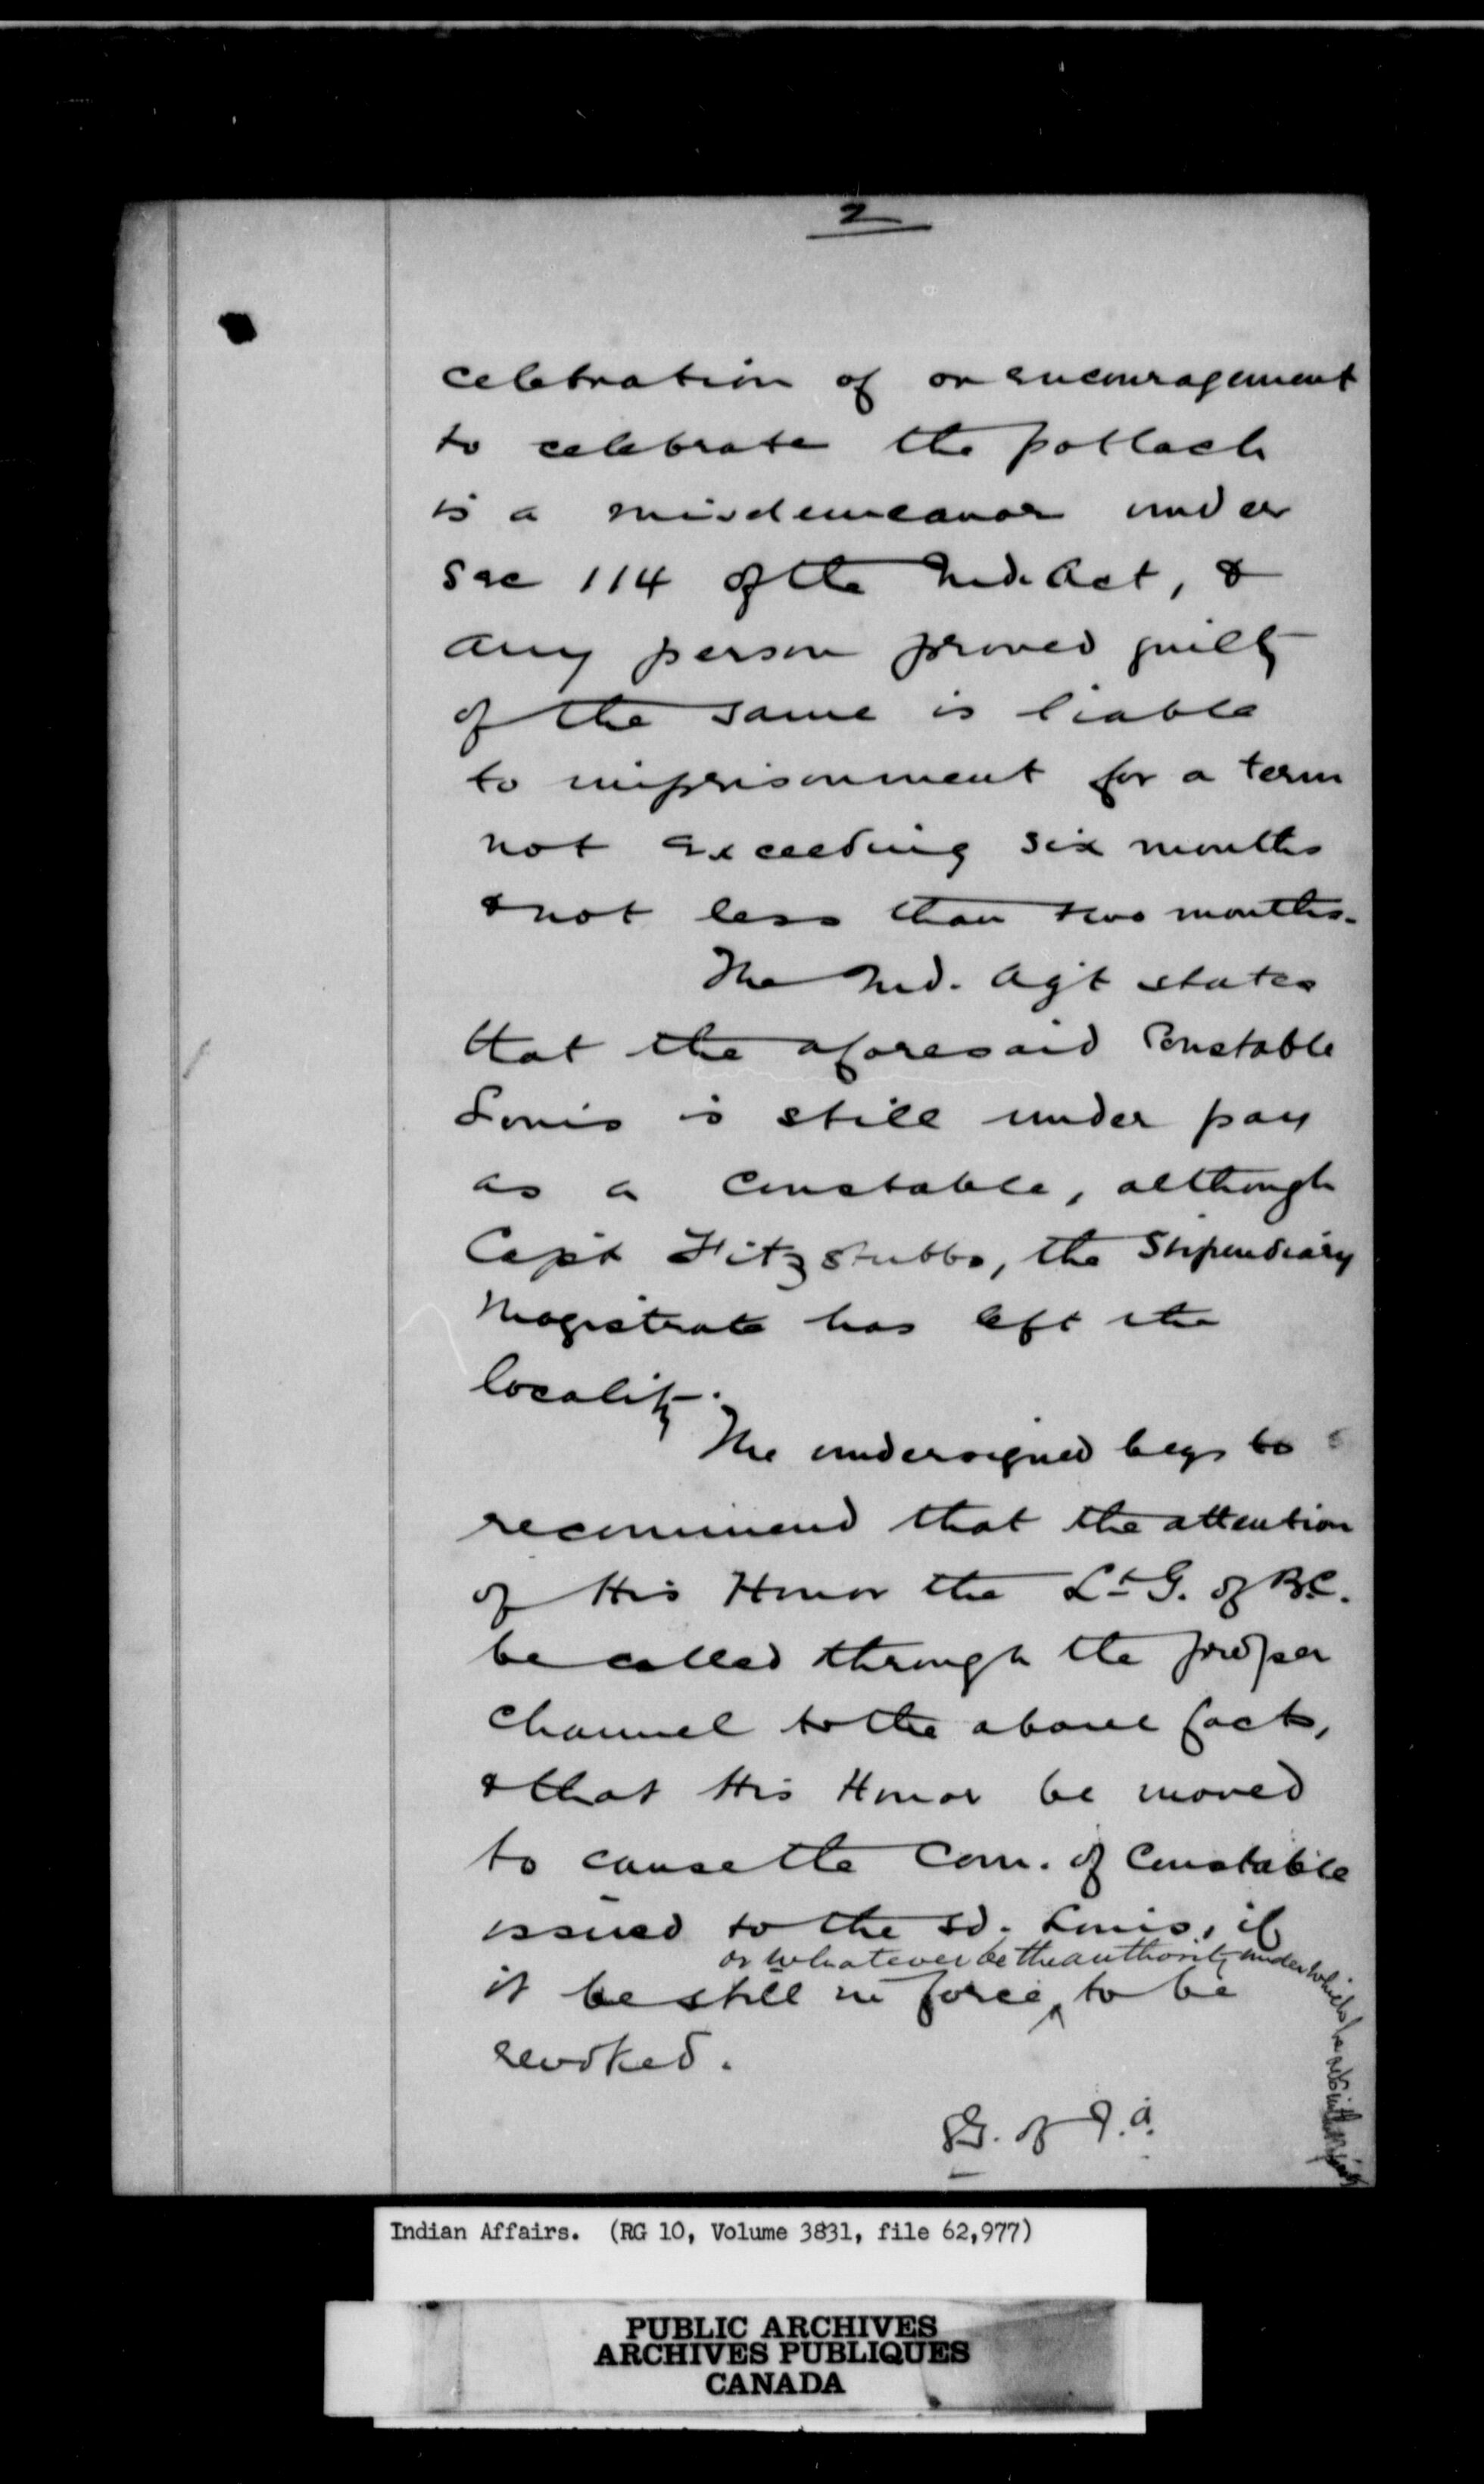 2
celebration of or encouragement
to celebrate the potlach
is a misdemeanor under
Sec 114 of the Ind. Act, &
any person proved guilty
of the same is liable
to imprisonment for a term
not exceeding six months
& not less than two months.
The Ind. Agt states
that the aforesaid Constable
Louis is still under pay
as a Constable, although
Capt Fitzstubbs, the Stipendiary
Magistrate has left the
locality.
The undersigned begs to
recommend that the attention
of His Honor the Lt G. of B.C.
be called through the proper
channel to the above facts,
& that His Honor be moved
to cause the Com. of Constable
issued to the sd. Louis, if
or whatever be the authority under which he acts in the
it be still in force, to be
revoked.
S.G. of I.A.
Indian Affairs. (RG 10, Volume 3831, file 62,977)
PUBLIC ARCHIVES
ARCHIVES PUBLIQUES
CANADA